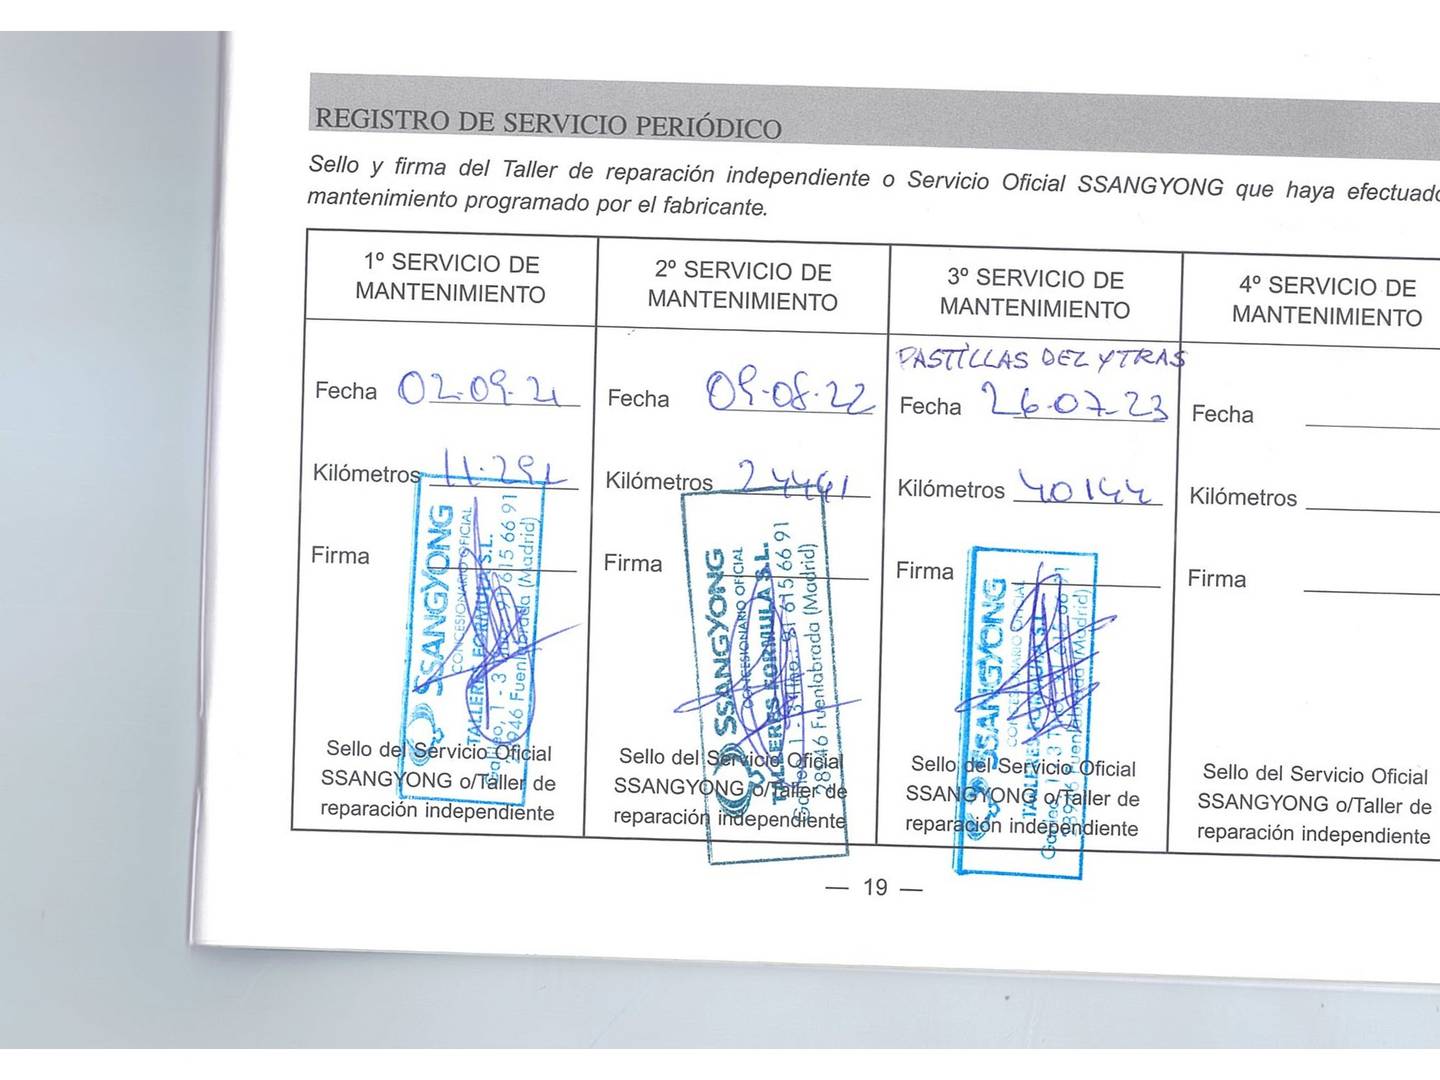 REGISTRO DE SERVICIO PERIÓDICO
Sello y firma del Taller de reparación independiente o Servicio Oficial SSANGYONG que haya efectuado
mantenimiento programado por el fabricante.
1º SERVICIO DE
MANTENIMIENTO
Fecha 02-09-21
Kilómetros 11.291
Firma
SSANGYONG
CONCESIONARIO OFICIAL
TALLERES FORMULA S.L.
1 - 3 91 615 66 91
28946 Fuenlabrada (Madrid)
Sello del Servicio Oficial
SSANGYONG o/Taller de
reparación independiente
2º SERVICIO DE
MANTENIMIENTO
Fecha 09-08-22
Kilómetros 24461
Firma
SSANGYONG
CONCESIONARIO OFICIAL
TALLERES FORMULA S.L.
1 - 3 91 615 66 91
28946 Fuenlabrada (Madrid)
Sello del Servicio Oficial
SSANGYONG o/Taller de
reparación independiente
3º SERVICIO DE
MANTENIMIENTO
PASTILLAS DEL Y TRAS
Fecha 26-07-23
Kilómetros 40144
Firma
SSANGYONG
CONCESIONARIO OFICIAL
TALLERES FORMULA S.L.
28946 Fuenlabrada (Madrid)
Sello del Servicio Oficial
SSANGYONG o/Taller de
reparación independiente
4º SERVICIO DE
MANTENIMIENTO
Fecha
Kilómetros
Firma
Sello del Servicio Oficial
SSANGYONG o/Taller de
reparación independiente
— 19 —